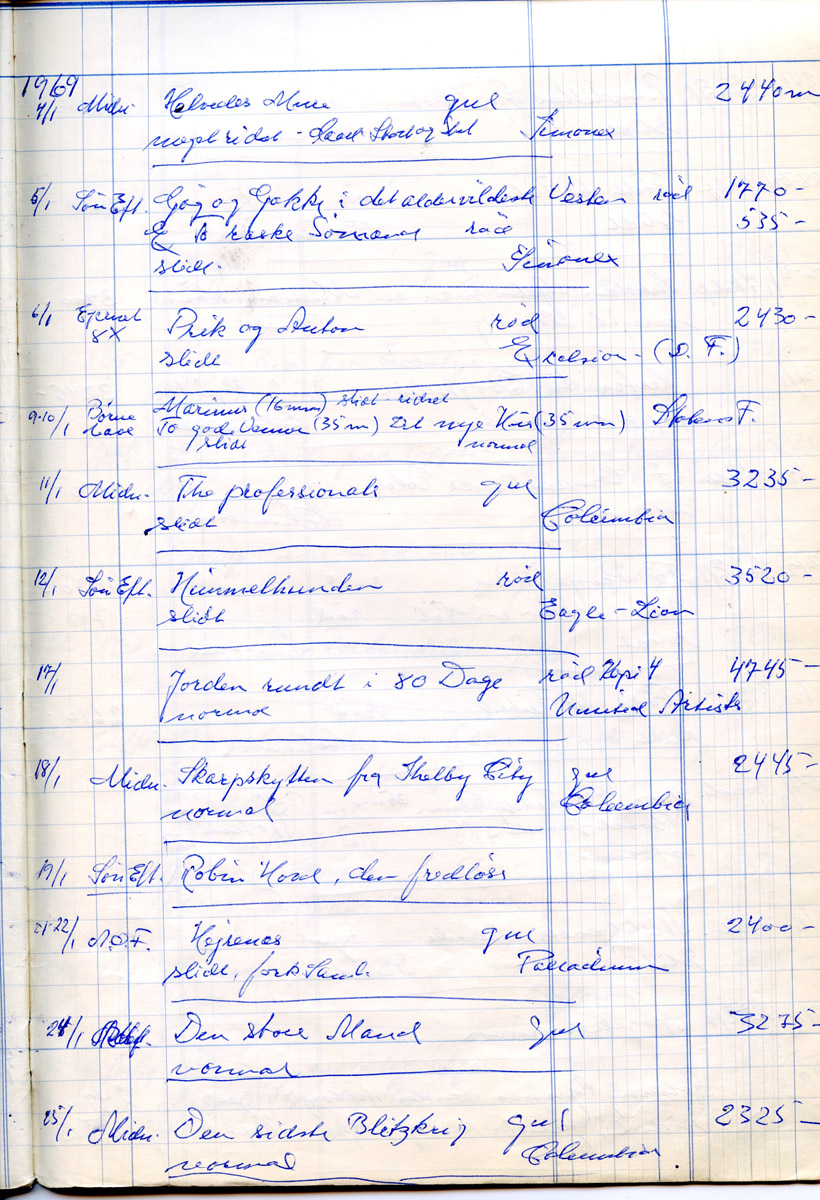 1969
4/1 Midn. Helvedes Mure gul 2440 m
meget ridset - Simonex
5/1 SønEft. Gøg og Gokke i det aldervildeste Vesten rød 1770-
To raske Sømænd rød 535-
slidt. Simonex
6/1 8X Prik og Anton rød 2430-
slidt Excelsior - (D. F.)
9-10/1 Børne Marinus (16mm) slidt ridset
To gode Venner (35 m) Det nye Hus (35 mm) Statens F.
slidt normal
11/1 Midn. The professionals gul 3235-
slidt Columbia
12/1 SønEft. Himmelhunden rød 3520-
slidt Eagle-Lion
17/1 Jorden rundt i 80 Dage rød Kopi 4 4745-
normal United Artists
18/1 Midn. Skarpskytten fra Shelby City gul 2445-
normal Columbia
19/1 SønEft. Robin Hood, den fredløse
21-22/1 N.O.F. Hejrenæs gul 2400-
slidt, Palladium
24/1 Den store Mand gul 3275-
normal
25/1 Midn. Den sidste Blitzkrig gul 2325-
normal Columbia